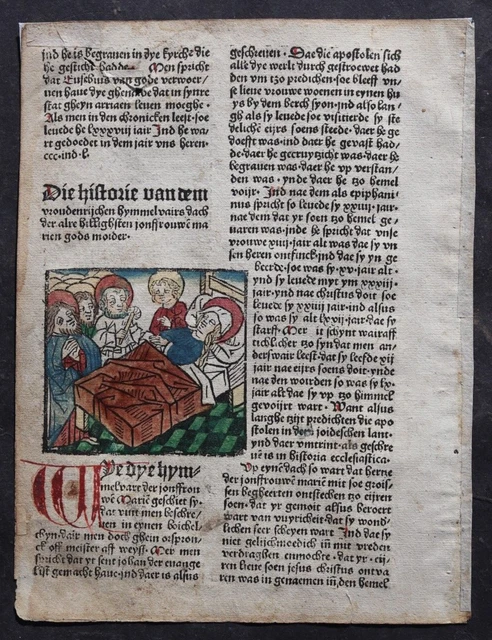 ind he is begrauen in dye kyrche die
he gesticht hadde · Men spricht
dat Eusebius van gode verwoer/
uen haue dye ghenade dat in synre
stat gheyn arriaen leuen moeghe ·
Als men in den chronicken leest · soe
leuede he lxxxviij iair Ind he wa
rt gedoedet in dem iair vns heren ·
ccc · ind · l ·
Die historie van dem
vroudenrijchen hymmelvairs dach
der alre hillighsten jonffrouwē ma
rien gods moider ·
We dye hym/
melvart der jonffrou
wē Marie geschiet sy ·
dat vint men beschre/
uen in eynen boichel
chyn · dair men doch ghein orspron
ck off meister aff weyss · Mer men
spricht dat yr sent johan der euange
list gemacht haue · ind daer is alsus
geschreuen · Dae die apostolen sich
alle dye werlt durch gestroewet had
den vm tzo predichen · soe bleeff vn/
se lieue vrouwe woenen in eynen hu
ys by dem berch syon · ind also lan/
gh als sy leuede soe visitierde sy ste
delichē eijrs soens stede · daer he ge
doefft was · ind daer he gevast had/
de · daer he gecruytzicht was · daer he
begrauen was · daer he vp verstan/
den was · ynde daer he tzo hemel
voijr · Ind nae dem als epiphani/
nus spricht so leuede sy xxiiij · jair ·
nae dem dat yr soen tzo hemel ge/
uaren was · inde he spricht dat vnse
vrouwe xiiij · jair alt was dae sy vn
sen heren ontfinck · ind dae sy yn ge
beerde · soe was sy · xv · jair alt ·
ynd sy leuede myt ym xxxiij ·
jair · ynd nae christus doit soe
leuede sy xxiiij jair · ind alsus
so was sy alt lxxij · jair · dae sy
starff · Mer it schynt wairaff
tichlicher tzo syn dat men an/
derswair leest · dat sy leefde xij
jair nae eijrs soens doit · ynde
nae den woorden so was sy lx ·
jair alt dae sy vp tzo himmel
gevoijrt wart · Want alsus
langhe tzijt predichten die apo
stolen in dem joideschen lant ·
ynd daer vmtrint · als geschre
uē is in historia ecclesiastica ·
Vp eynē dach so wart dat herne
der jonffrouwē mariē mit soe grois/
sen begheerten ontstechen tzo eijren
soen · dat yr gemoit alsus beroert
wart van vuyricheit · dat sy wond/
lichen seer scheyen wart Ind dae sy
niet gelichmoedich in mit vreden
verdraghen enmochte · dat yr · eij/
ren lieue soen jesus christus ontva
ren was in genaemen iñ den hemel